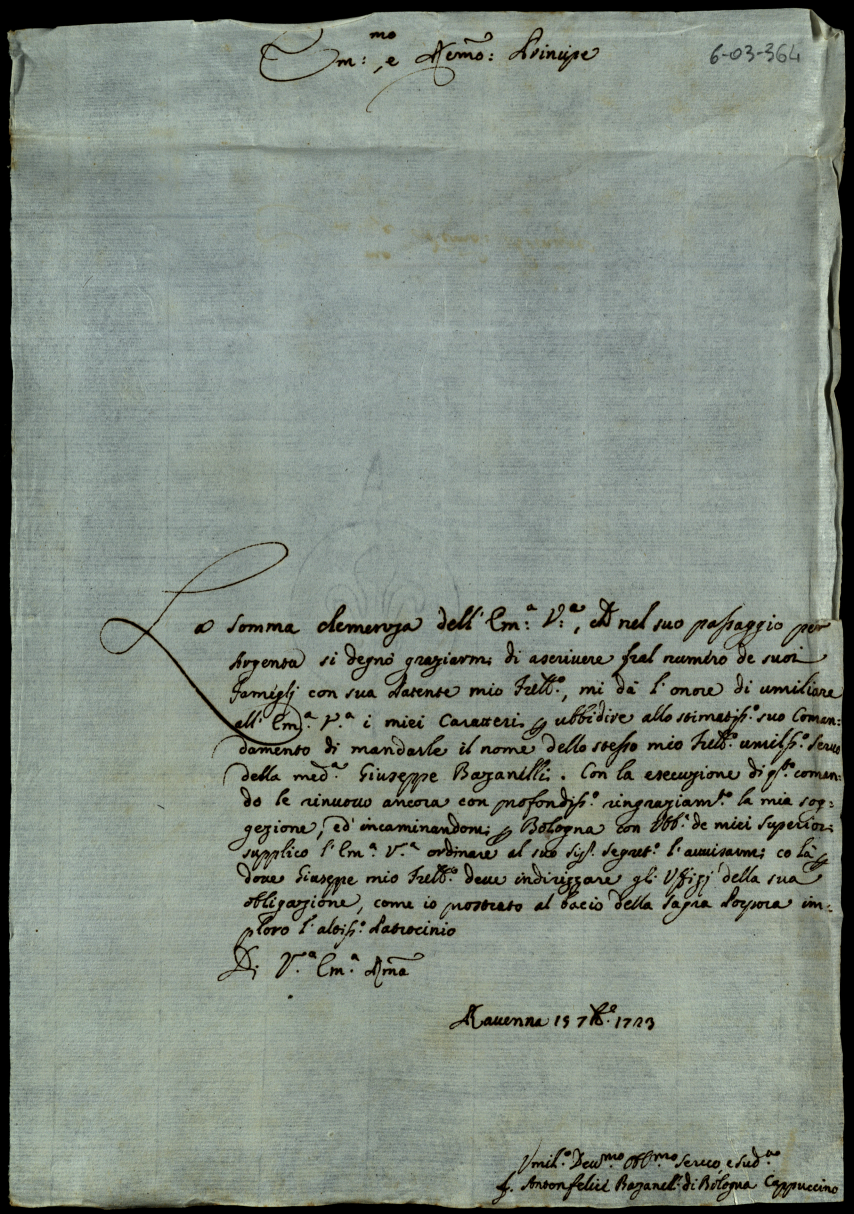 Em:mo, e Remo: Principe
6-03-364
La somma clemenza dell' Em:a V:a, che nel suo passaggio per
Argenta si degnò graziarmi di ascrivere fral numero de suoi
Famiglj con sua Patente mio Fretto:, mi dà l'onore di umiliare
all' Em:a V:a i miei Caratteri p ubbidire allo stimatiss:o suo Coman:
damento di mandarle il nome dello stesso mio Fretto: umiliss:o servo
della med:a Giuseppe Bazanelli. Con la esecuzione di qsto coman:
do le rinuovo ancora con profondiss:o ringraziamto: la mia sog:
gezione, ed' incaminandomi p Bologna con Obb:a de miei superiori
supplico l' Em:a V:a ordinare al suo sigr: segreto: l'avvisarmi colà p
dove Giuseppe mio Fretto: deve indirizzare gli Uffizj della sua
obligazione, come io prostrato al bacio della sagra Porpora im:
ploro l'altiss:o Patrocinio
Di V:a Em:a Rma
Ravenna 15 7bre: 1723
Umil:o Devmo Obbmo servo, e sud:o
f. Antonfelice Bazanel:i di Bologna Cappuccino